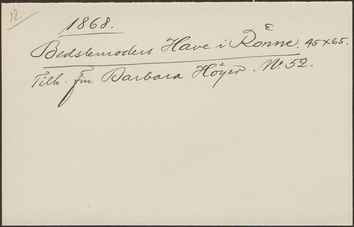 12.
1868.
Bedstemoders Have i Rønne. 45x65.
Tilh. Frk Barbara Höyer. No 52.